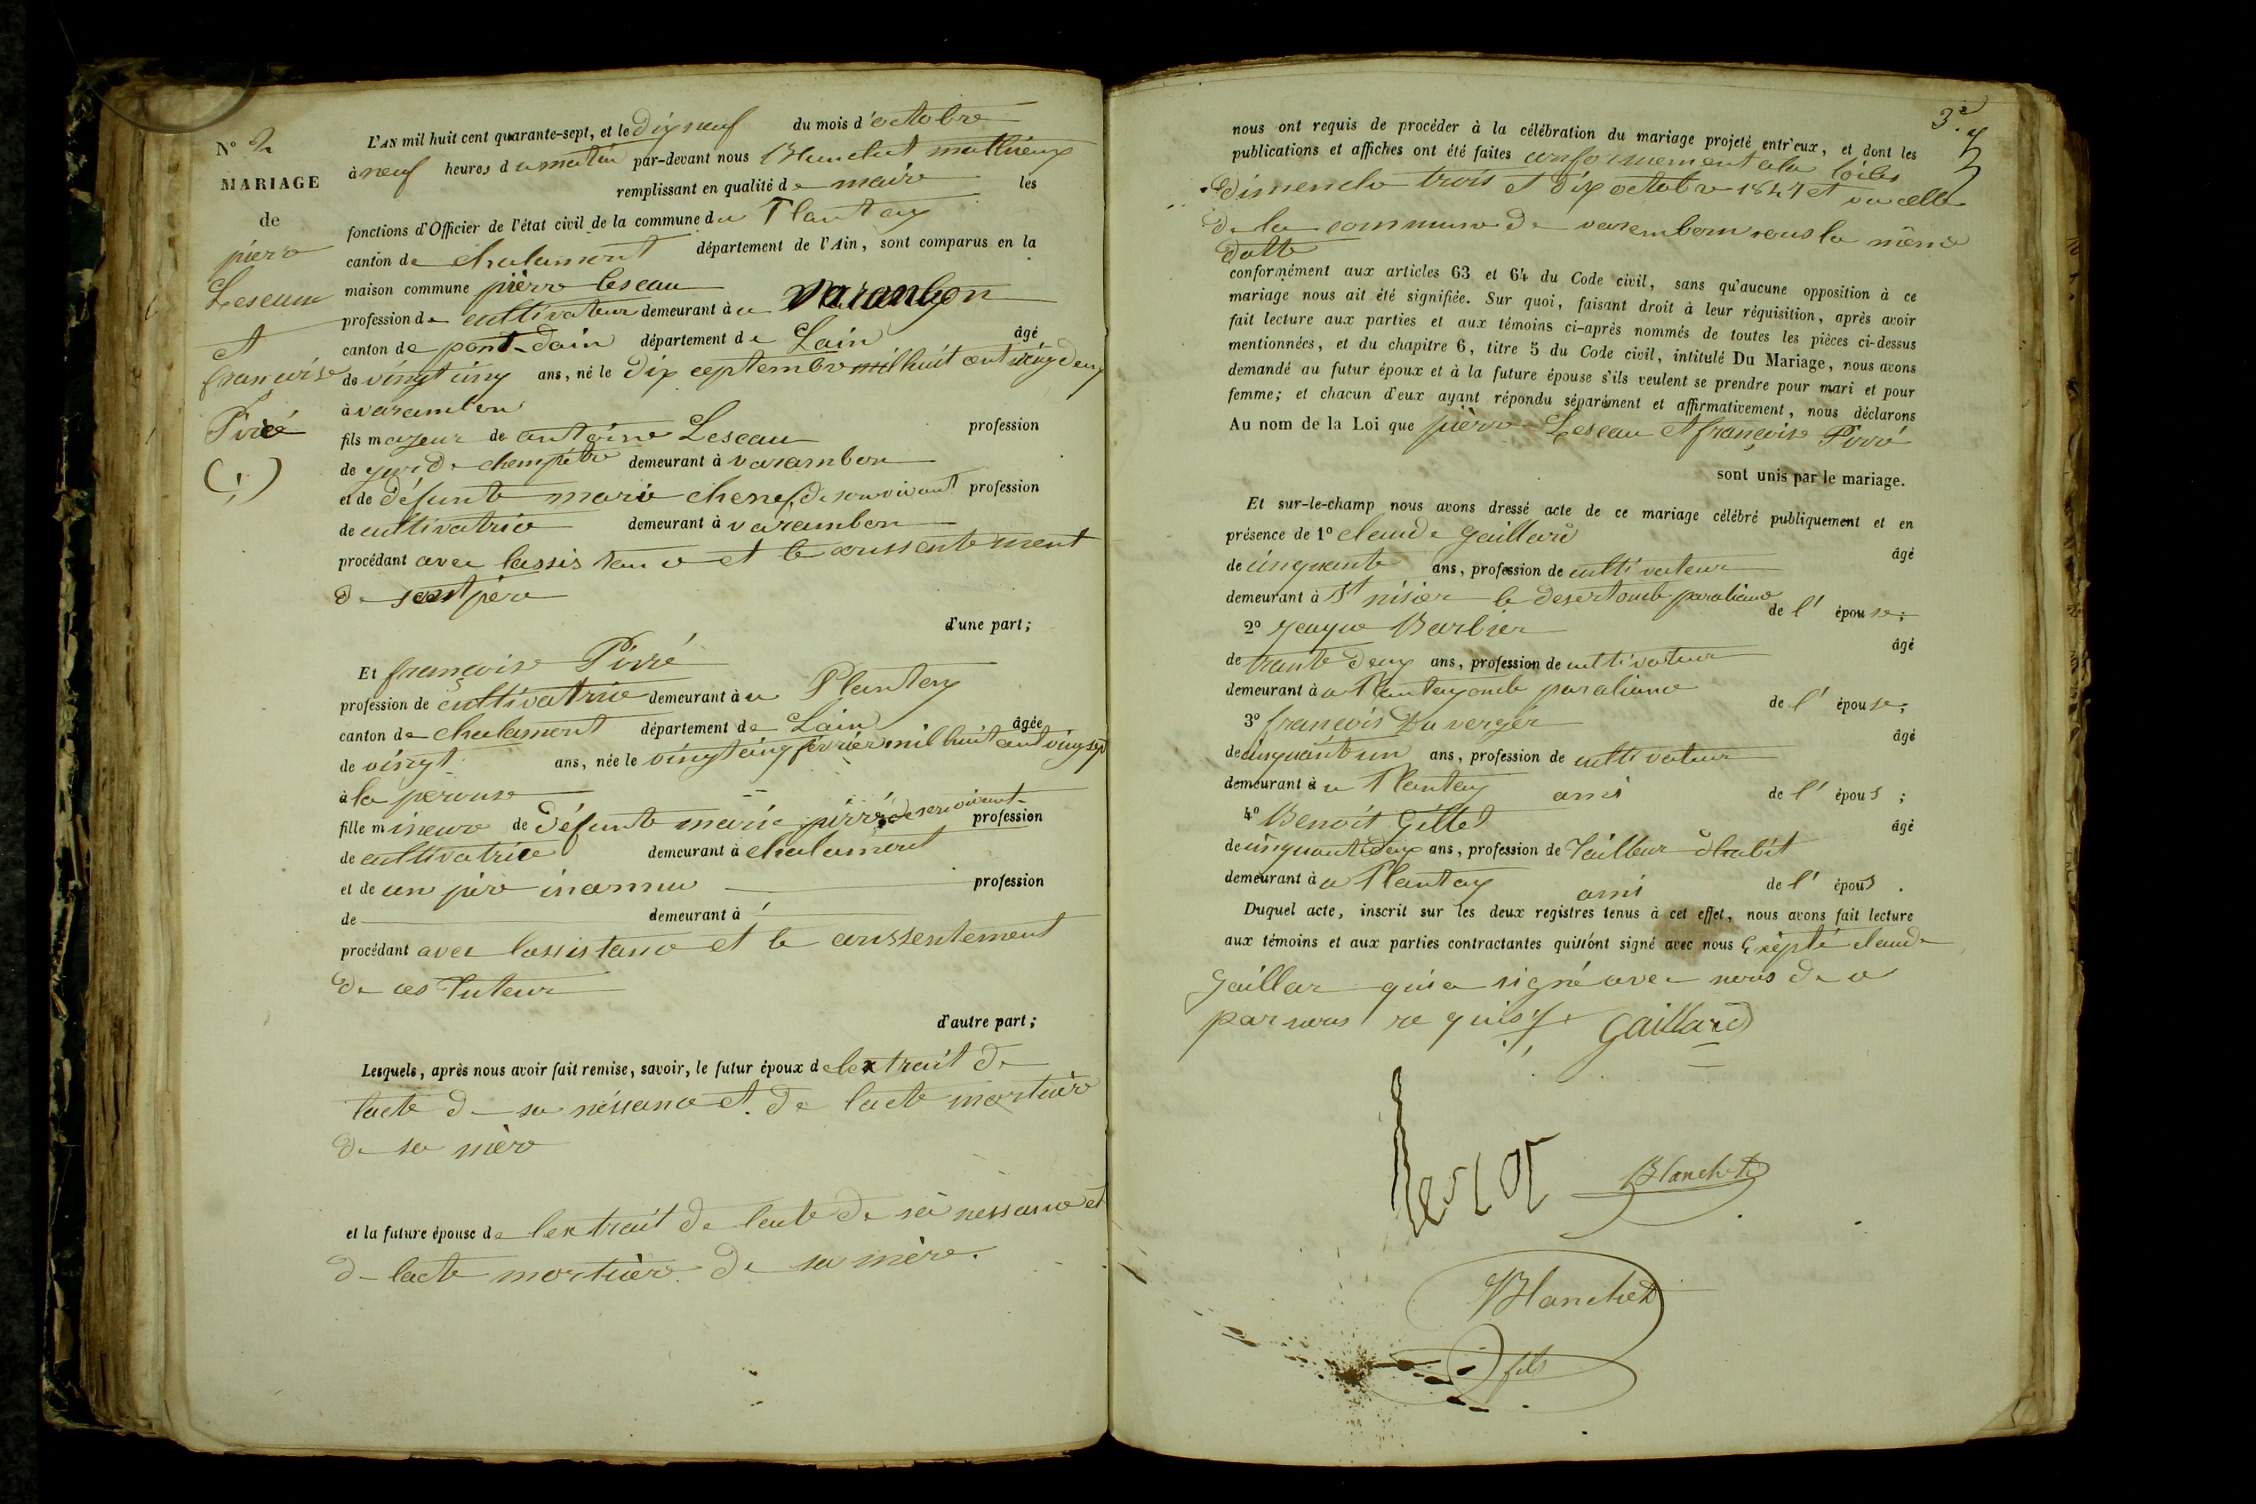 N° 2
MARIAGE
de
pierre
Leseau
et
françoise
Pirré
(1)
L'AN mil huit cent quarante-sept, et le dix neuf du mois d'octobre
à neuf heures du matin par-devant nous Blanchet mathieux
remplissant en qualité de maire les
fonctions d'Officier de l'état civil de la commune du Plantay
canton de chalamont département de l'Ain, sont comparus en la
maison commune pièrre leseau
profession de cultivateur demeurant à a varanbon
canton de pont-dain département de Lain âgé
de vingt cinq ans, né le dix ceptembre mil huit cent vingt deux
à varambon
fils majeur de antoine Leseau profession
de garde champêtre demeurant à varambon
et de défunte marie chene de son vivant profession
de cultivatrice demeurant à varambon
procédant avec lassistance et le consentement
de sont père
d'une part;
Et françoise Pirré
profession de cultivatrice demeurant à u Plantay
canton de chalamont département de Lain âgée
de vingt ans, née le vingt cinq février mil huit cent vingt sept
à la perouse
fille mineure de défunte marie pirré de son vivant profession
de cultivatrice demeurant à chalamont
et de un père inconnu profession
de demeurant à
procédant avec lassistance et le conssentement
de ces tuteur
d'autre part;
Lesquels, après nous avoir fait remise, savoir, le futur époux de lextrait de
lacte de sa néssance et de lacte mortuère
de sa mère
et la future épouse de lextrait de lacte de sa néssance et
de lacte mortuère de sa mère.
3e
nous ont requis de procéder à la célébration du mariage projeté entr'eux, et dont les
publications et affiches ont été faites conformement a la loi les
dimenche trois et dix octobre 1847 et vu celle
de la commune de varembon sous la même
datte
conformément aux articles 63 et 64 du Code civil, sans qu'aucune opposition à ce
mariage nous ait été signifiée. Sur quoi, faisant droit à leur réquisition, après avoir
fait lecture aux parties et aux témoins ci-après nommés de toutes les pièces ci-dessus
mentionnées, et du chapitre 6, titre 5 du Code civil, intitulé Du Mariage, nous avons
demandé au futur époux et à la future épouse s'ils veulent se prendre pour mari et pour
femme; et chacun d'eux ayant répondu séparément et affirmativement, nous déclarons
Au nom de la Loi que pièrre Leseau et françoise Pirré
sont unis par le mariage.
Et sur-le-champ nous avons dressé acte de ce mariage célébré publiquement et en
présence de 1° claude gaillard
âgé
de cinquante ans, profession de cultivateur
demeurant à St nisier le desert oncle par aliance de l' épouse;
2° jacque Barbier
âgé
de trante deux ans, profession de cultivateur
demeurant à u Plantay oncle par aliance de l' épouse;
3° françois Du verger
âgé
de cinquante un ans, profession de cultivateur
demeurant à u Plantay ami de l' épous ;
4° Benoit Gillet
âgé
de cinquante deux ans, profession de Tailleur dhabit
demeurant à u Plantay ami de l' épous .
Duquel acte, inscrit sur les deux registres tenus à cet effet, nous avons fait lecture
aux témoins et aux parties contractantes qui n'ont signé avec nous Excèpté claude
gaillar qui a signé avec nous de ce
par nous requis
Gaillard
Blanchet
Blanchet
fils